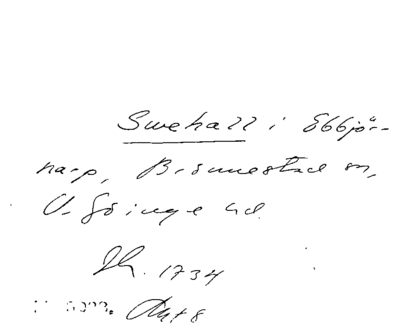 Swehall i Ebbjör-
narp, Brönnestad sn,
V. Göinge hd.
Th. 1734